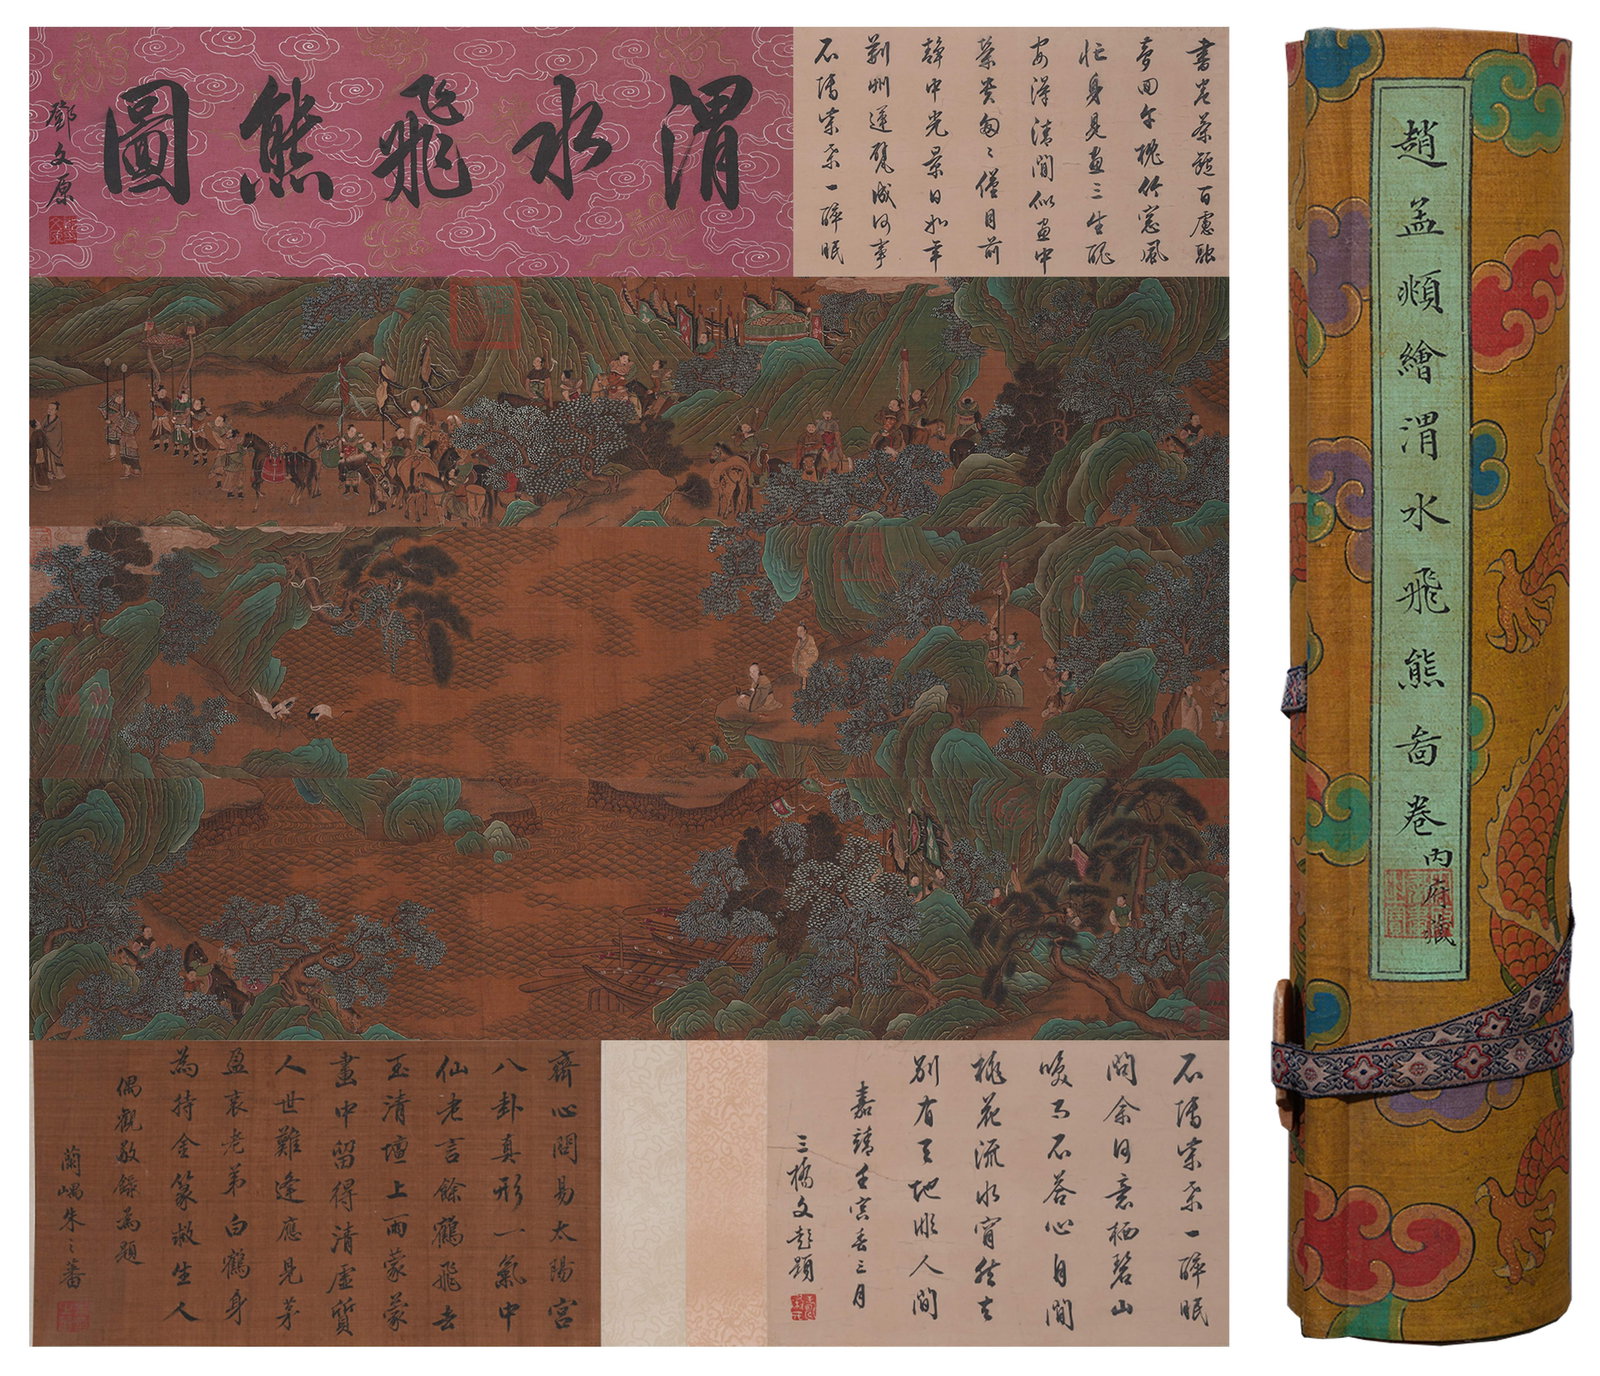 渭水飛熊圖
鄧文原
書卷茶甌百慮融
夢回午枕竹窓風
忙身見畫三生醒
安得清閒似畫中
葉葉匆匆僅目前
靜中光景日如年
荊州運甓成何事
石墻柴扉一醉眠
石墻柴扉一醉眠
問余何意栖碧山
笑而不答心自閒
桃花流水窅然去
別有天地非人間
嘉靖壬寅春三月
三橋文彭題
齋心問易太陽宮
八卦真形一氣中
仙老言餘鶴飛去
玉清壇上雨蒙蒙
畫中留得清虛質
人世難逢應見茅
盈衷老弟白鶴身
為持金篆救生人
偶觀敬錄為題
蘭嵎朱之蕃
趙孟頫繪渭水飛熊啚卷
內府藏